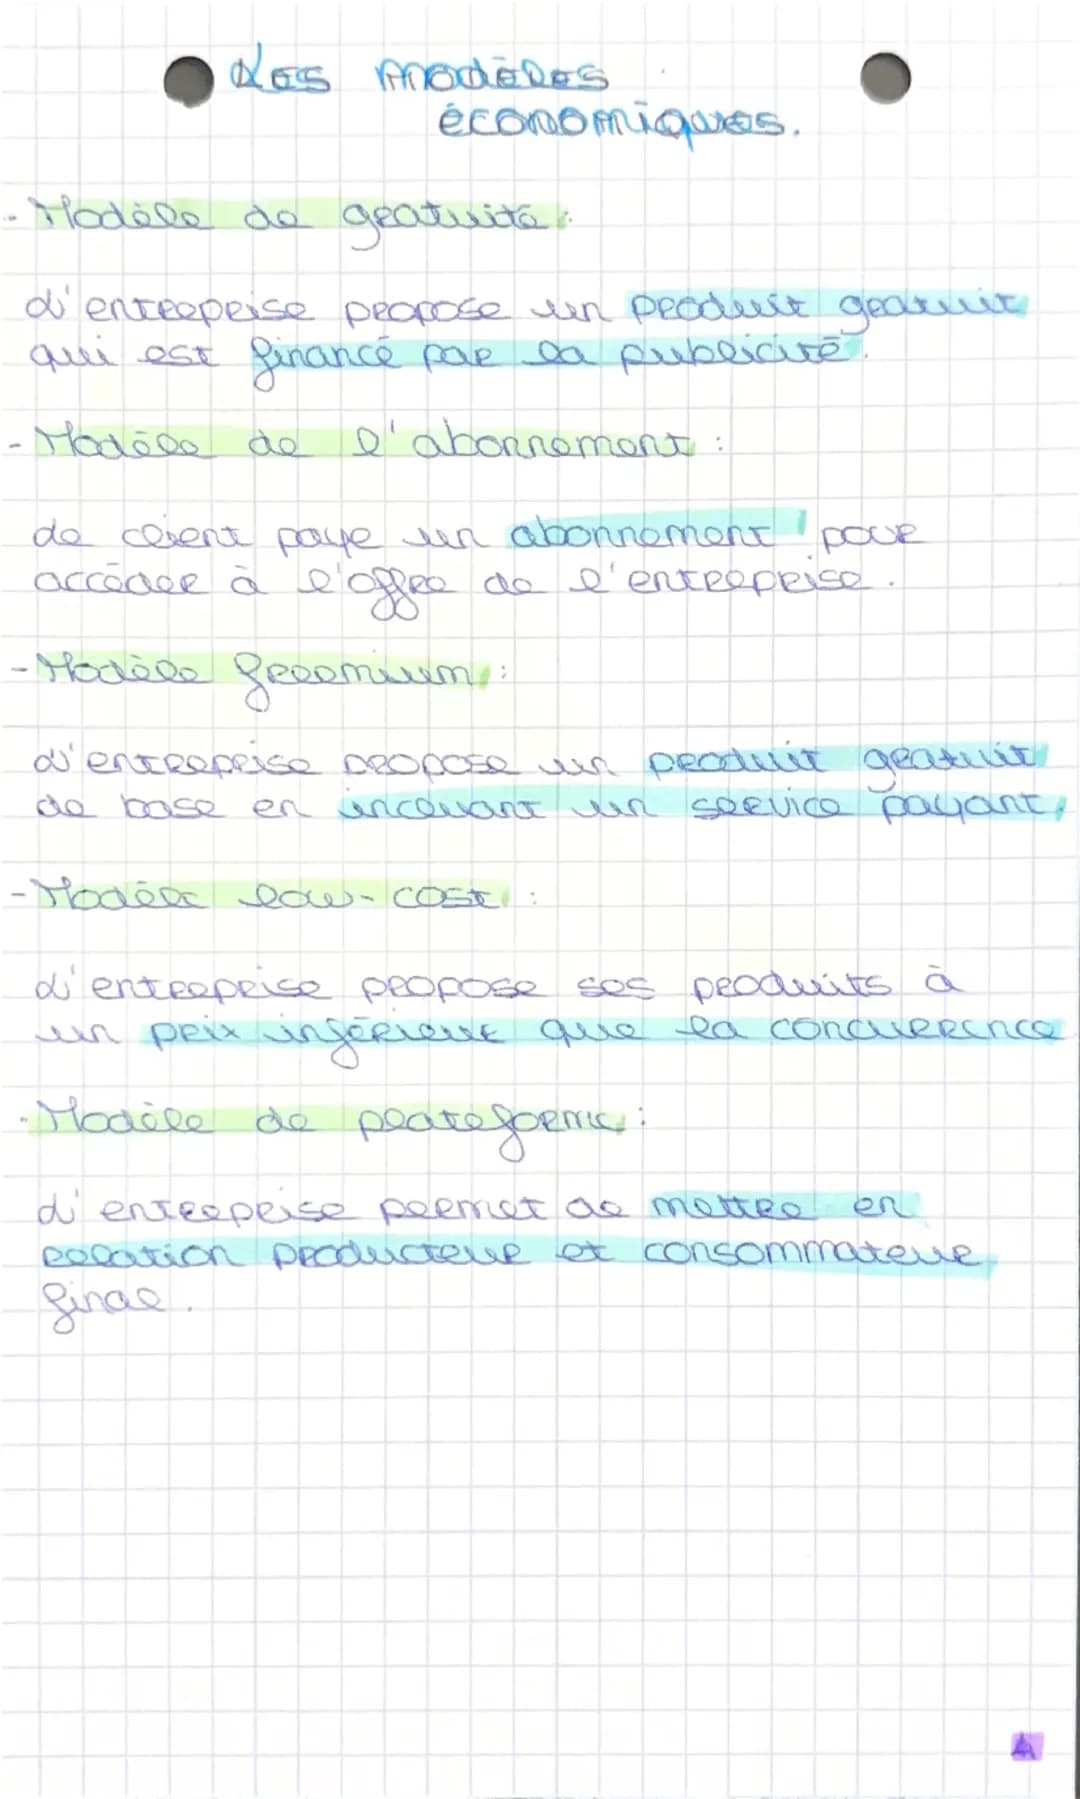 Les modèles
économiques.
- Modèle de gratuité :
L'entreprise propose un produit gratuit
qui est financé par la publicité.
- Modèle de l'abonnement :
Le client paye un abonnement pour
accéder à l'offre de l'entreprise.
- Modèle freemium :
L'entreprise propose un produit gratuit
de base en incluant un service payant.
- Modèle low-cost :
L'entreprise propose ses produits à
un prix inférieur que la concurrence
- Modèle de plateforme :
L'entreprise permet de mettre en
relation producteur et consommateur
final.